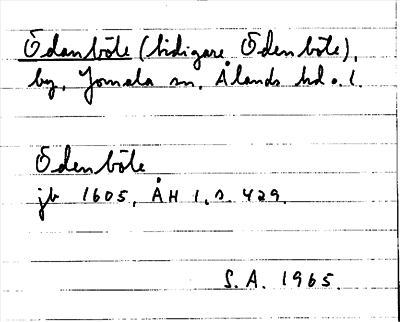 Ödanböte (tidigare Ödenböte),
by, Jomala sn, Ålands hd o. l.
Ödenböte
jb 1605, ÅH 1, s. 429.
S. A. 1965.